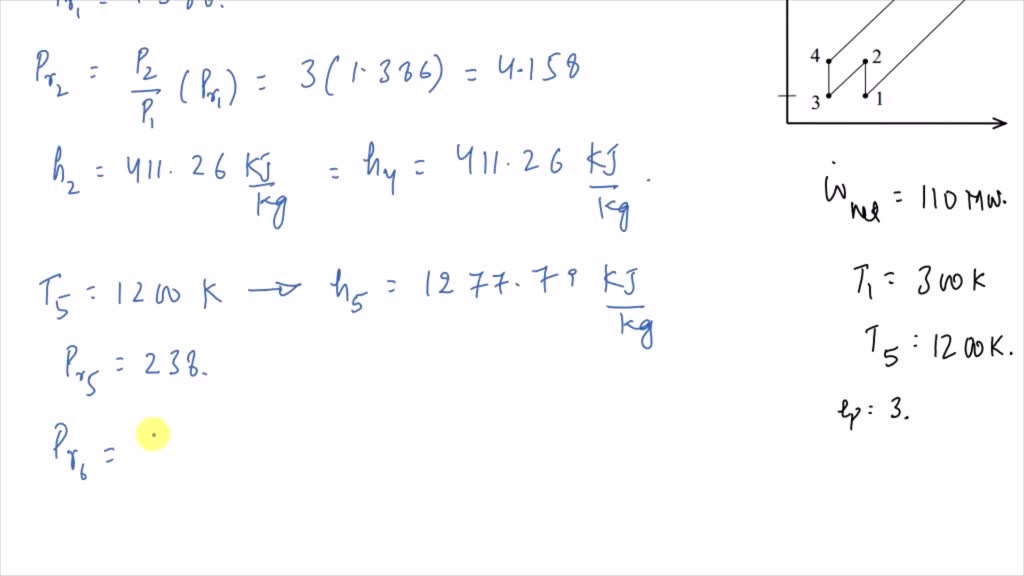 Pr2 = P2/P1 (Pr1) = 3(1.386) = 4.158
h2 = 411.26 KJ/kg = h4 = 411.26 KJ/kg.
T5 = 1200 K → h5 = 1277.79 KJ/kg
Pr5 = 238.
Pr6 =
4 2
3 1
ẇnet = 110 MW.
T1 = 300K
T5 = 1200K.
rp = 3.